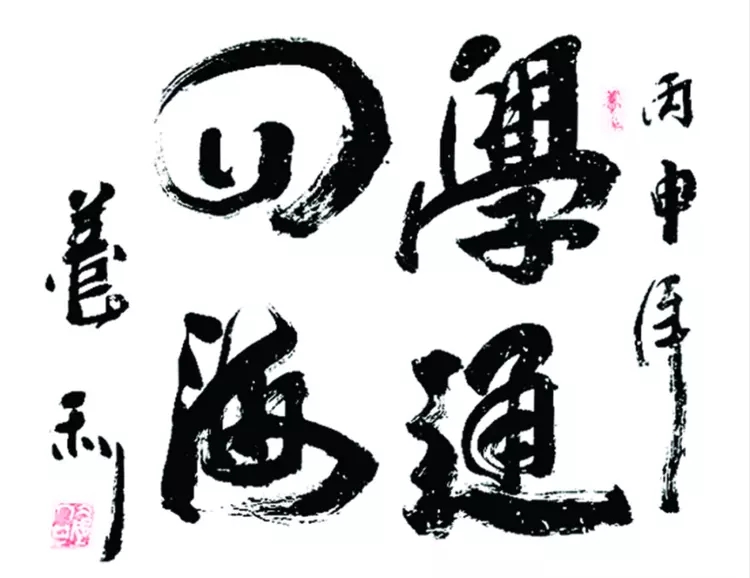 丙申年
學通
四海
利